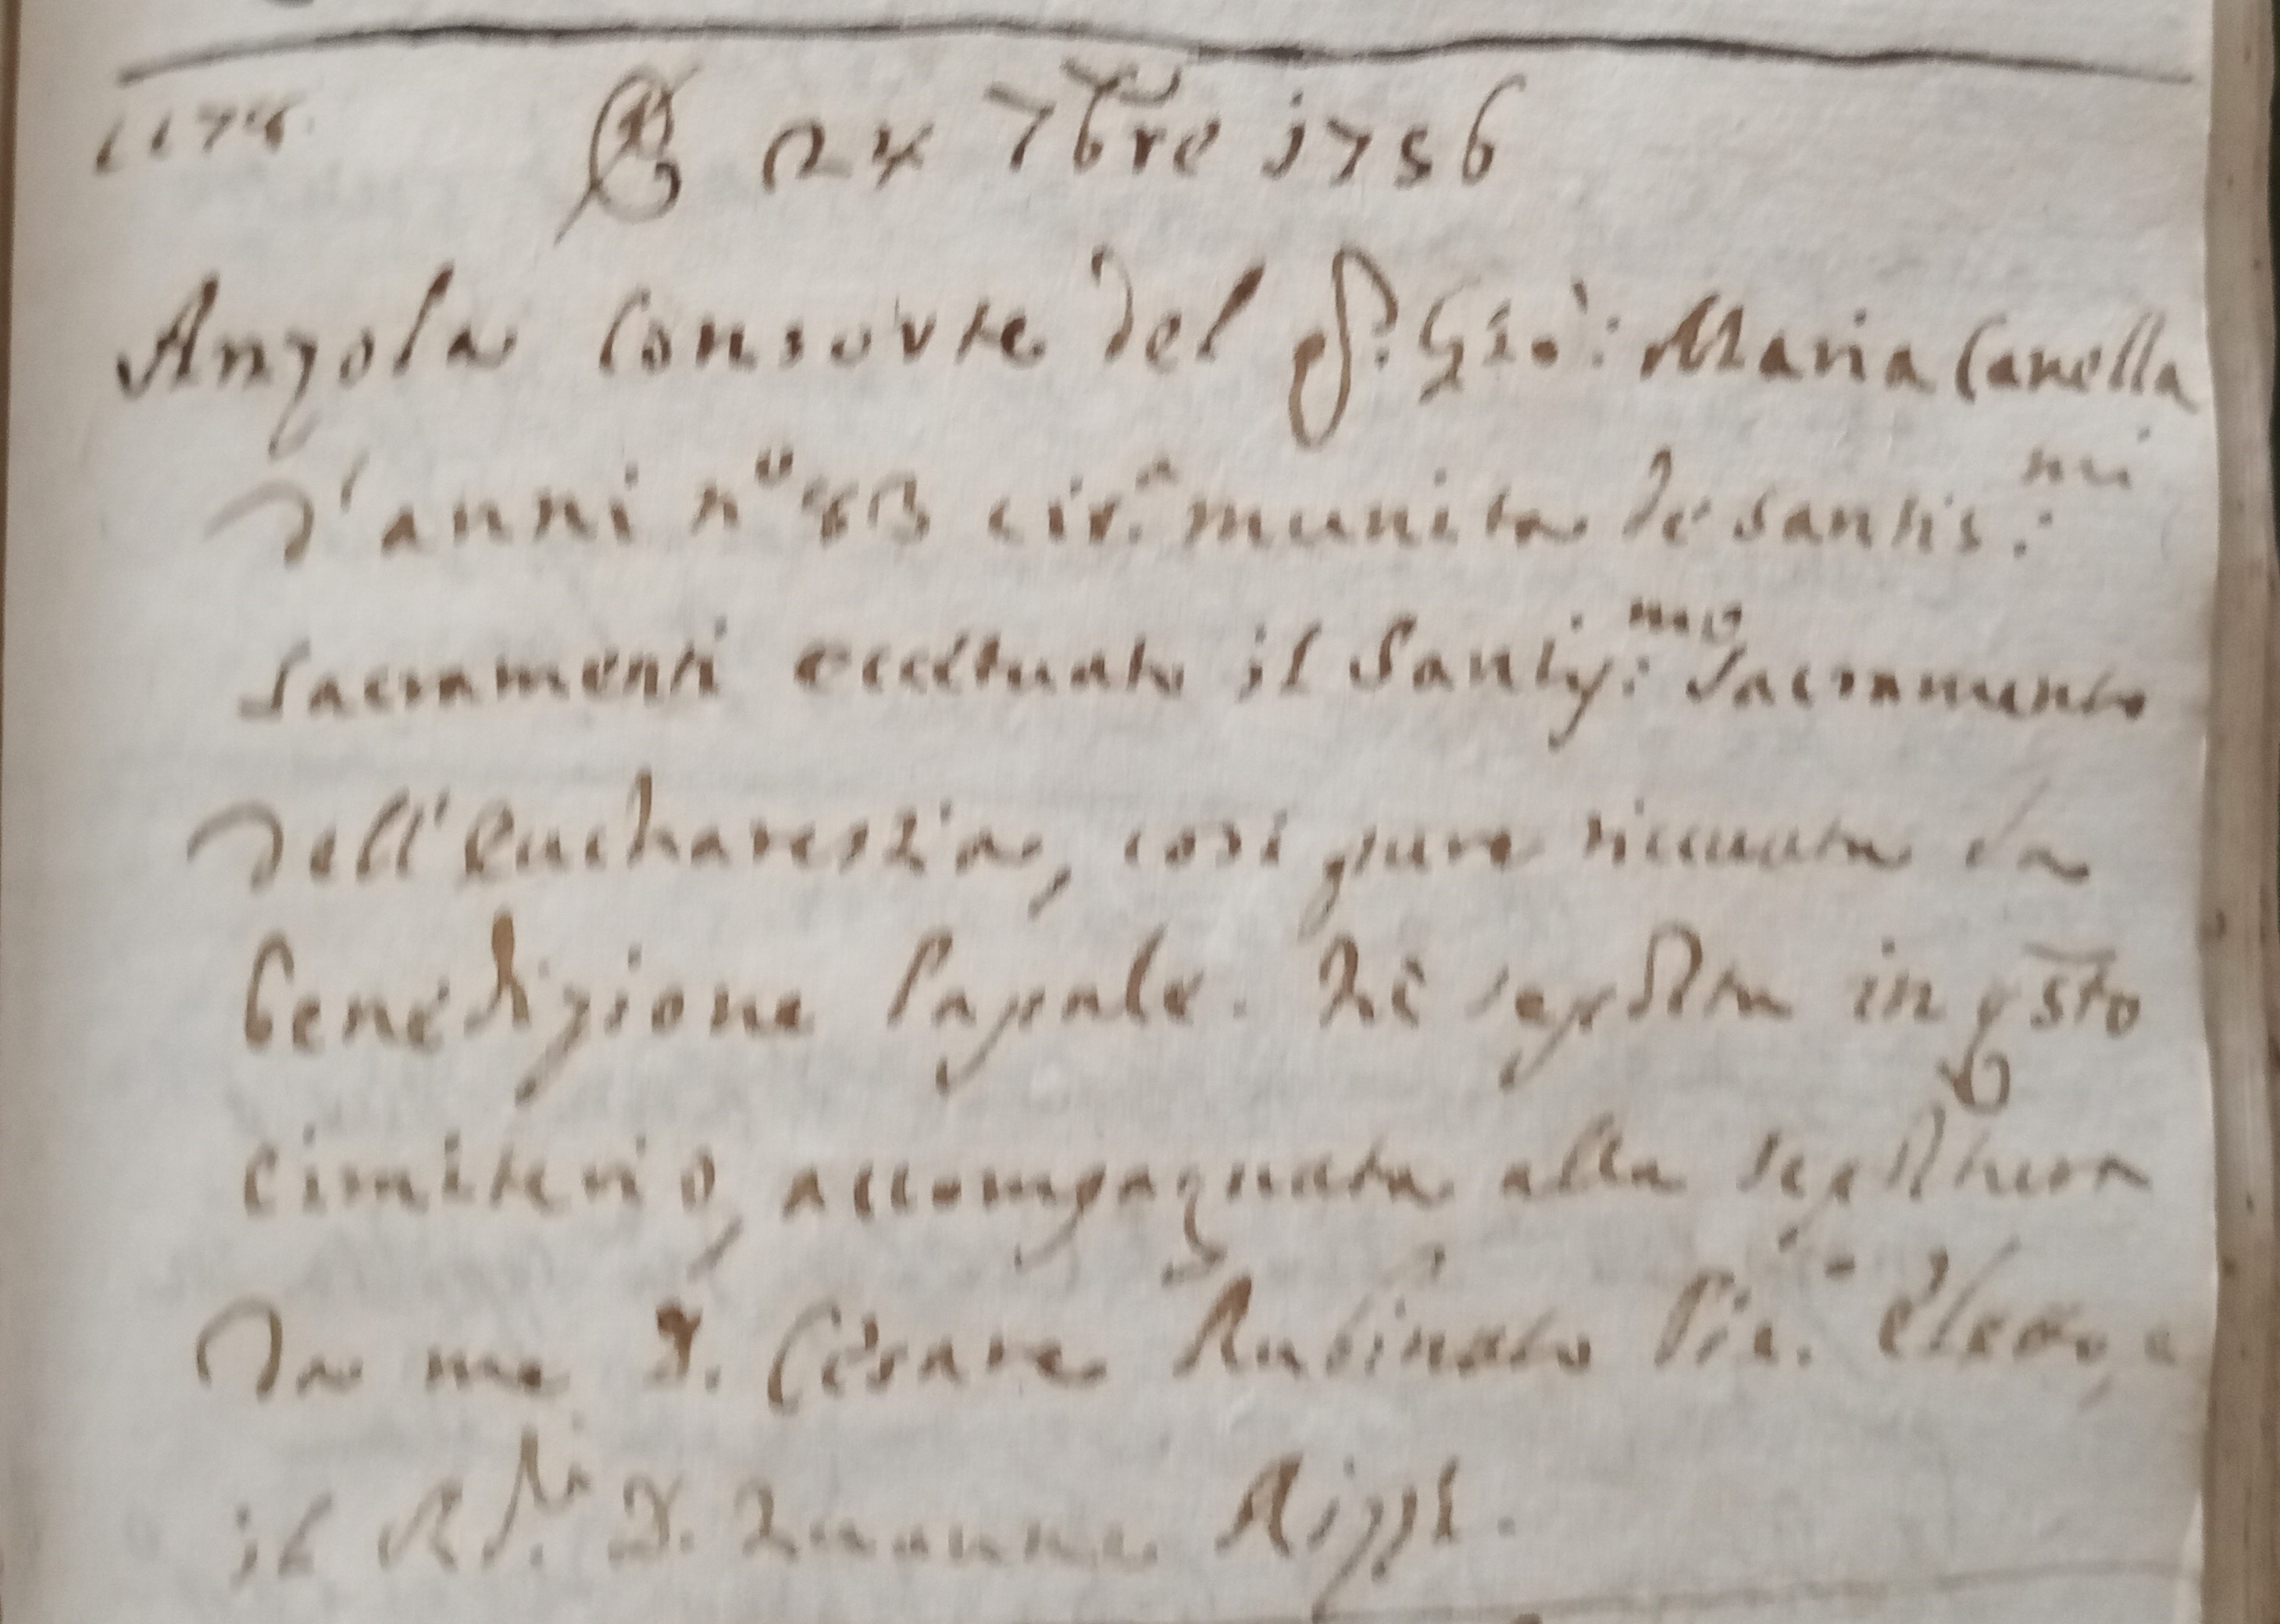 24 7bre 1756
Anzola Consorte del S. Gio: Maria Canella
d'anni n° 63 cir.a munita de santis:mi
Sacramenti eccettuato il Santis:mo Sacramento
dell'Eucharestia, così pure riceuuta la
benedizione Papale. Fù sepolta in qsto
cimiterio, accompagnata alla sepoltura
da me D. Cesare Rubinato Pie. Eletto, e
il Rdo. D. Zuanne Rizzi.